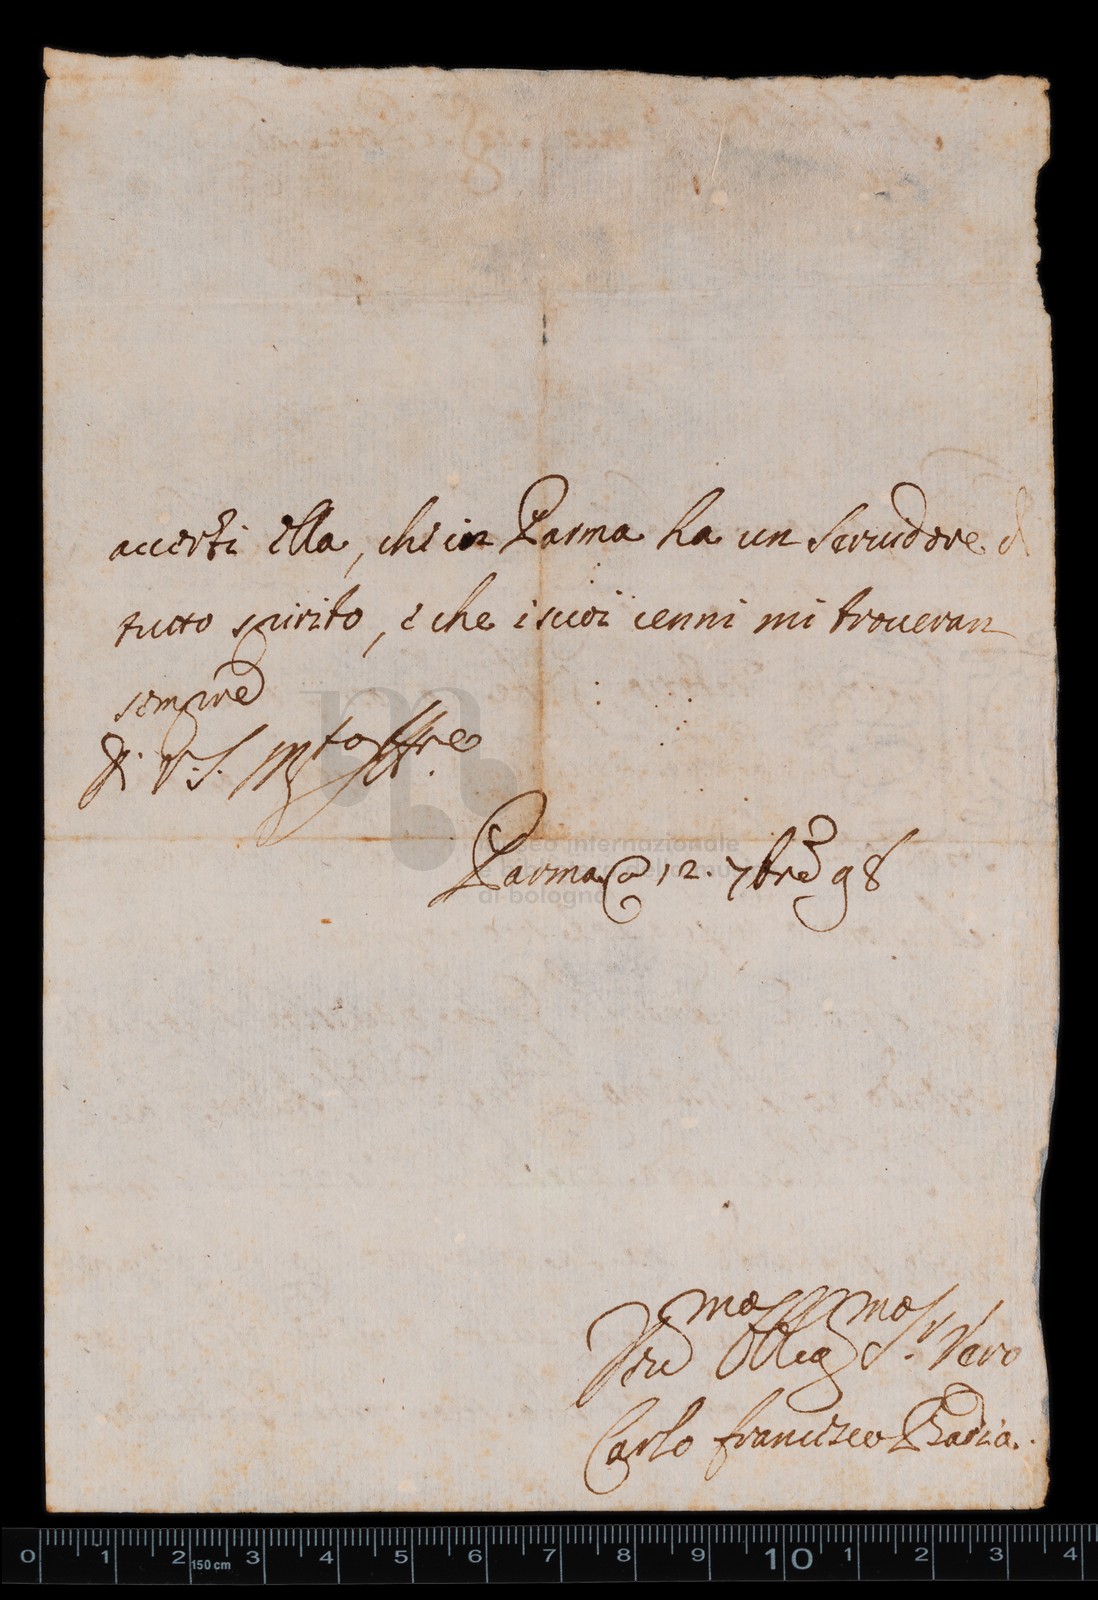 accerti ella, che in Parma ha un Servidore d
tutto spirito, e che i suoi cenni mi troveran
sempre
D. V. S. M.to Ill.re
Parma 12. 7bre 98
museo internazionale
e biblioteca della musica
di bologna
Oblig.mo S.r Vero
Carlo Francesco Badia.
0 1 2 150 cm 3 4 5 6 7 8 9 10 1 2 3 4